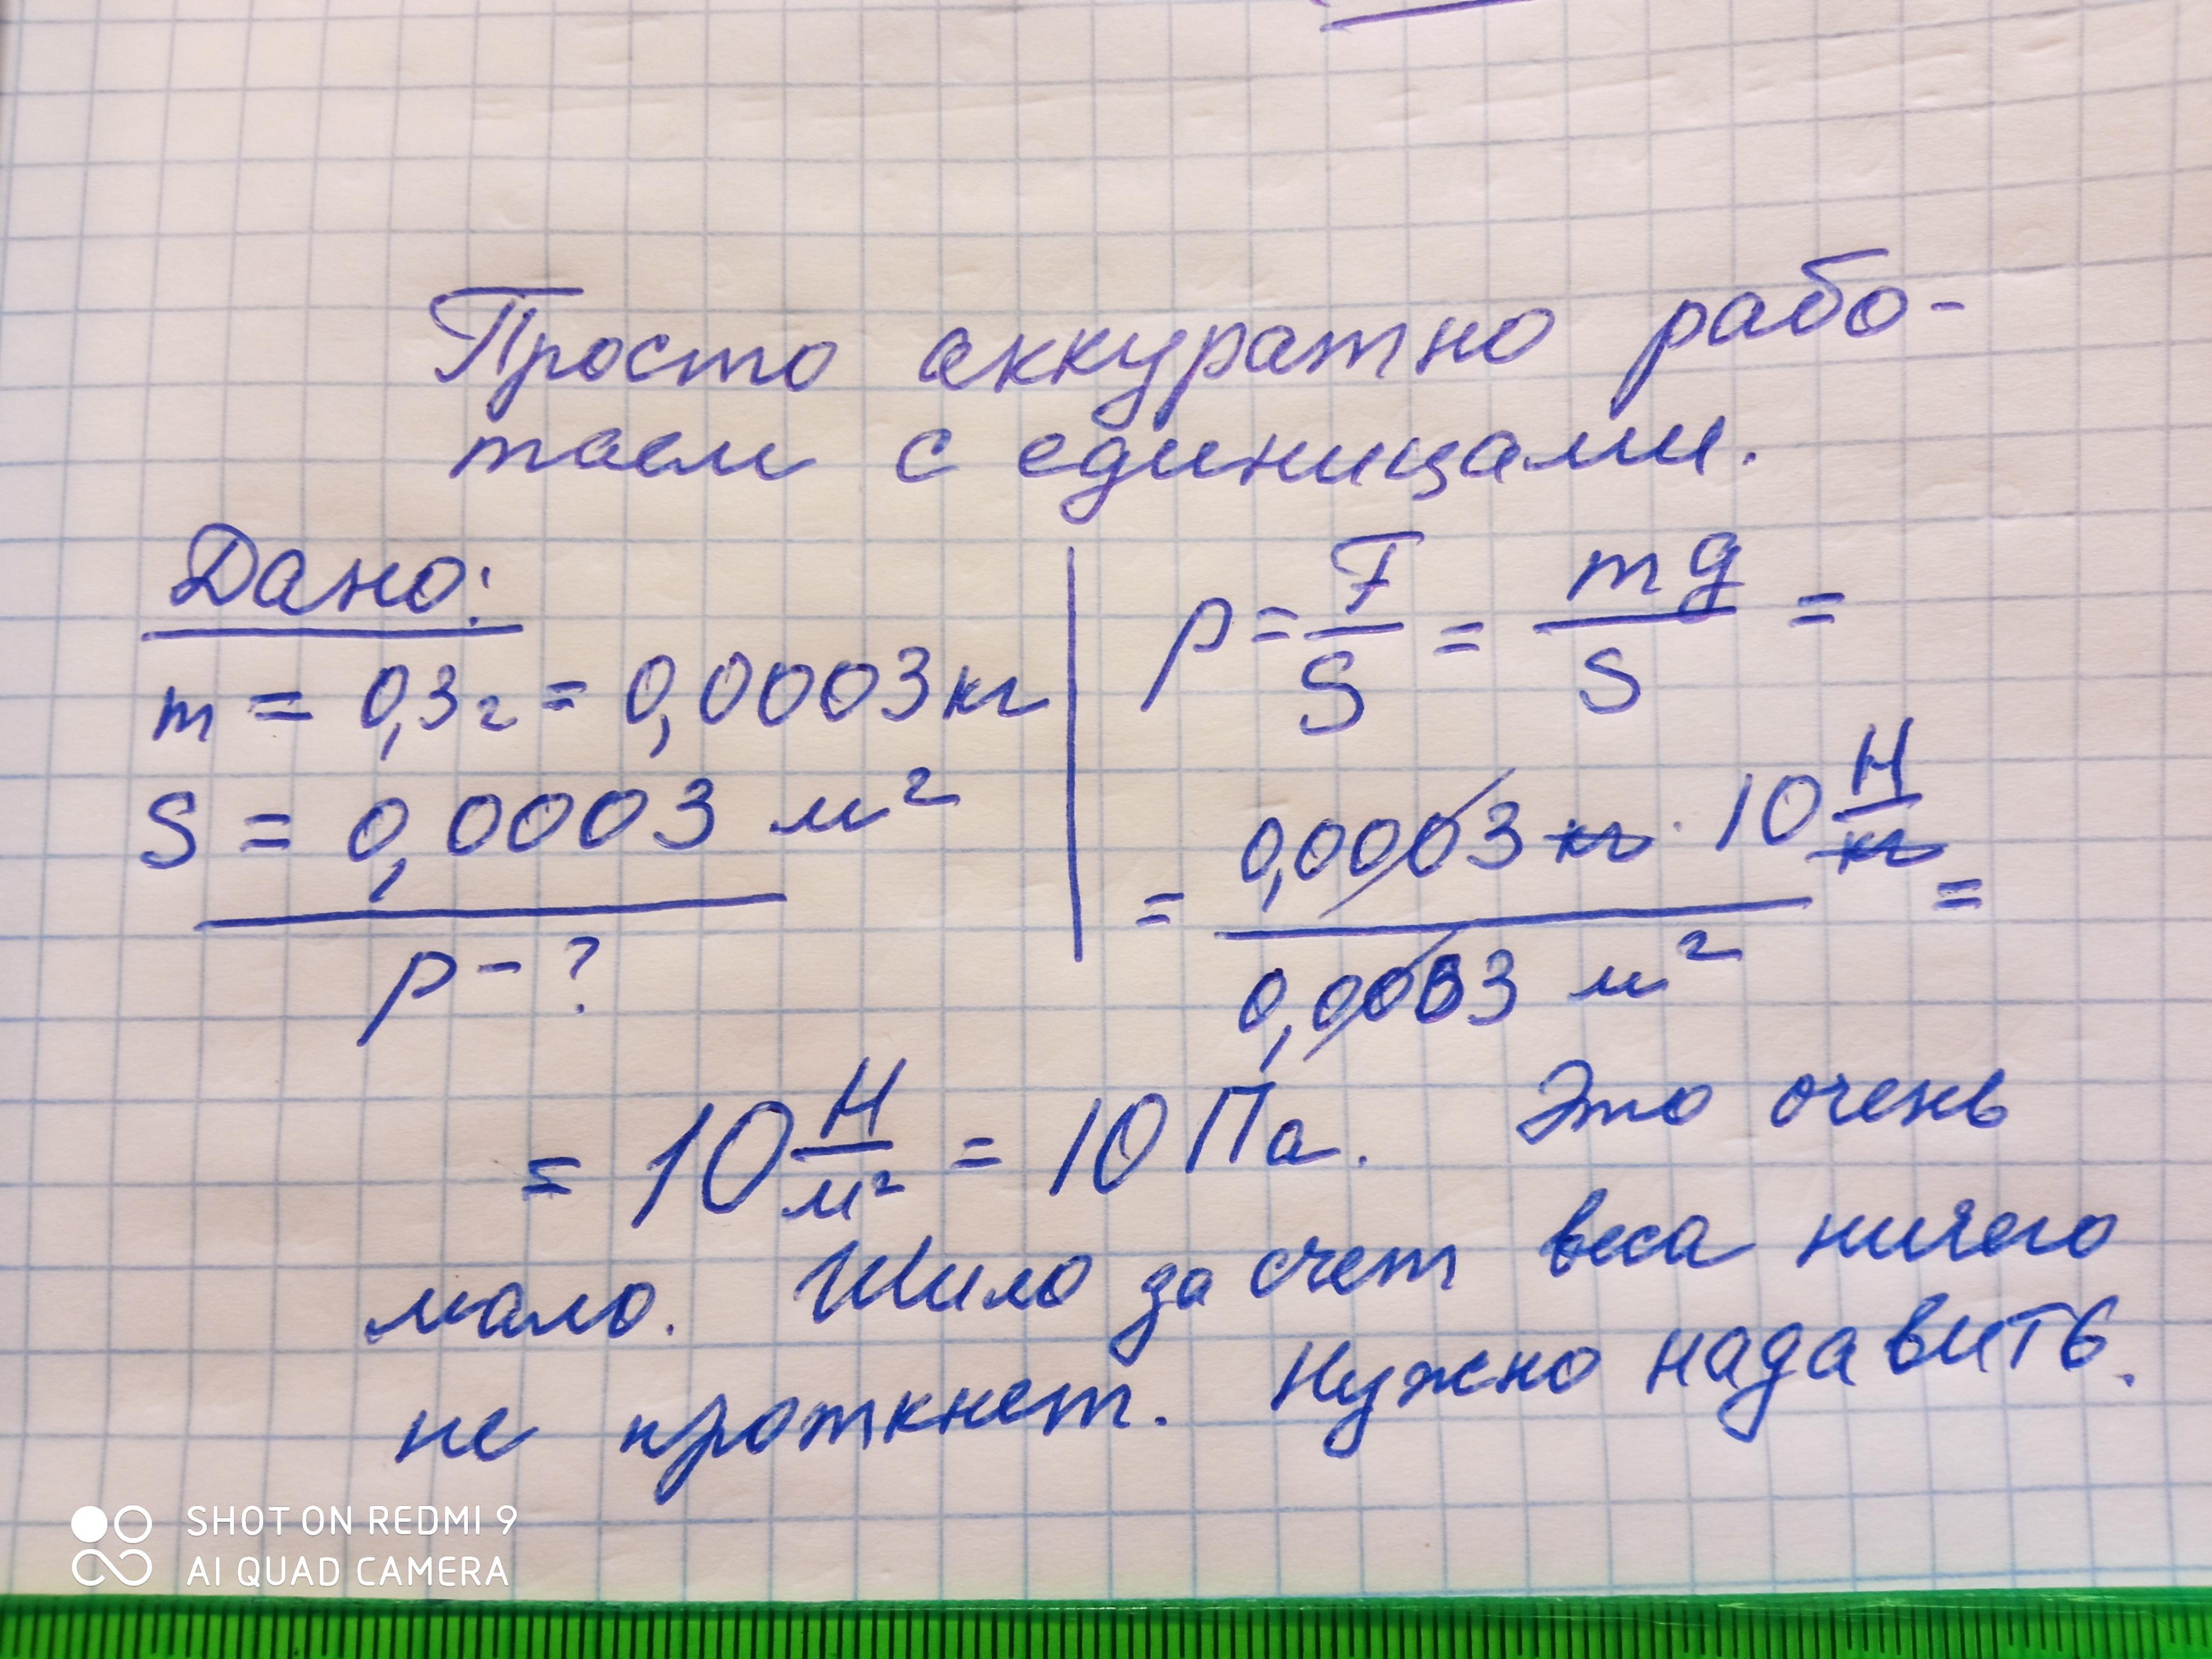 Просто аккуратно рабо-
таем с единицами.
Дано:
m = 0,3г = 0,0003кг
S = 0,0003 м²
p - ?
p = F/S = mg/S =
= 0,0003 кг · 10 Н/кг / 0,0003 м² =
= 10 Н/м² = 10 Па. Это очень
мало. Шило за счет веса ничего
не проткнет. Нужно надавить.
SHOT ON REDMI 9
AI QUAD CAMERA